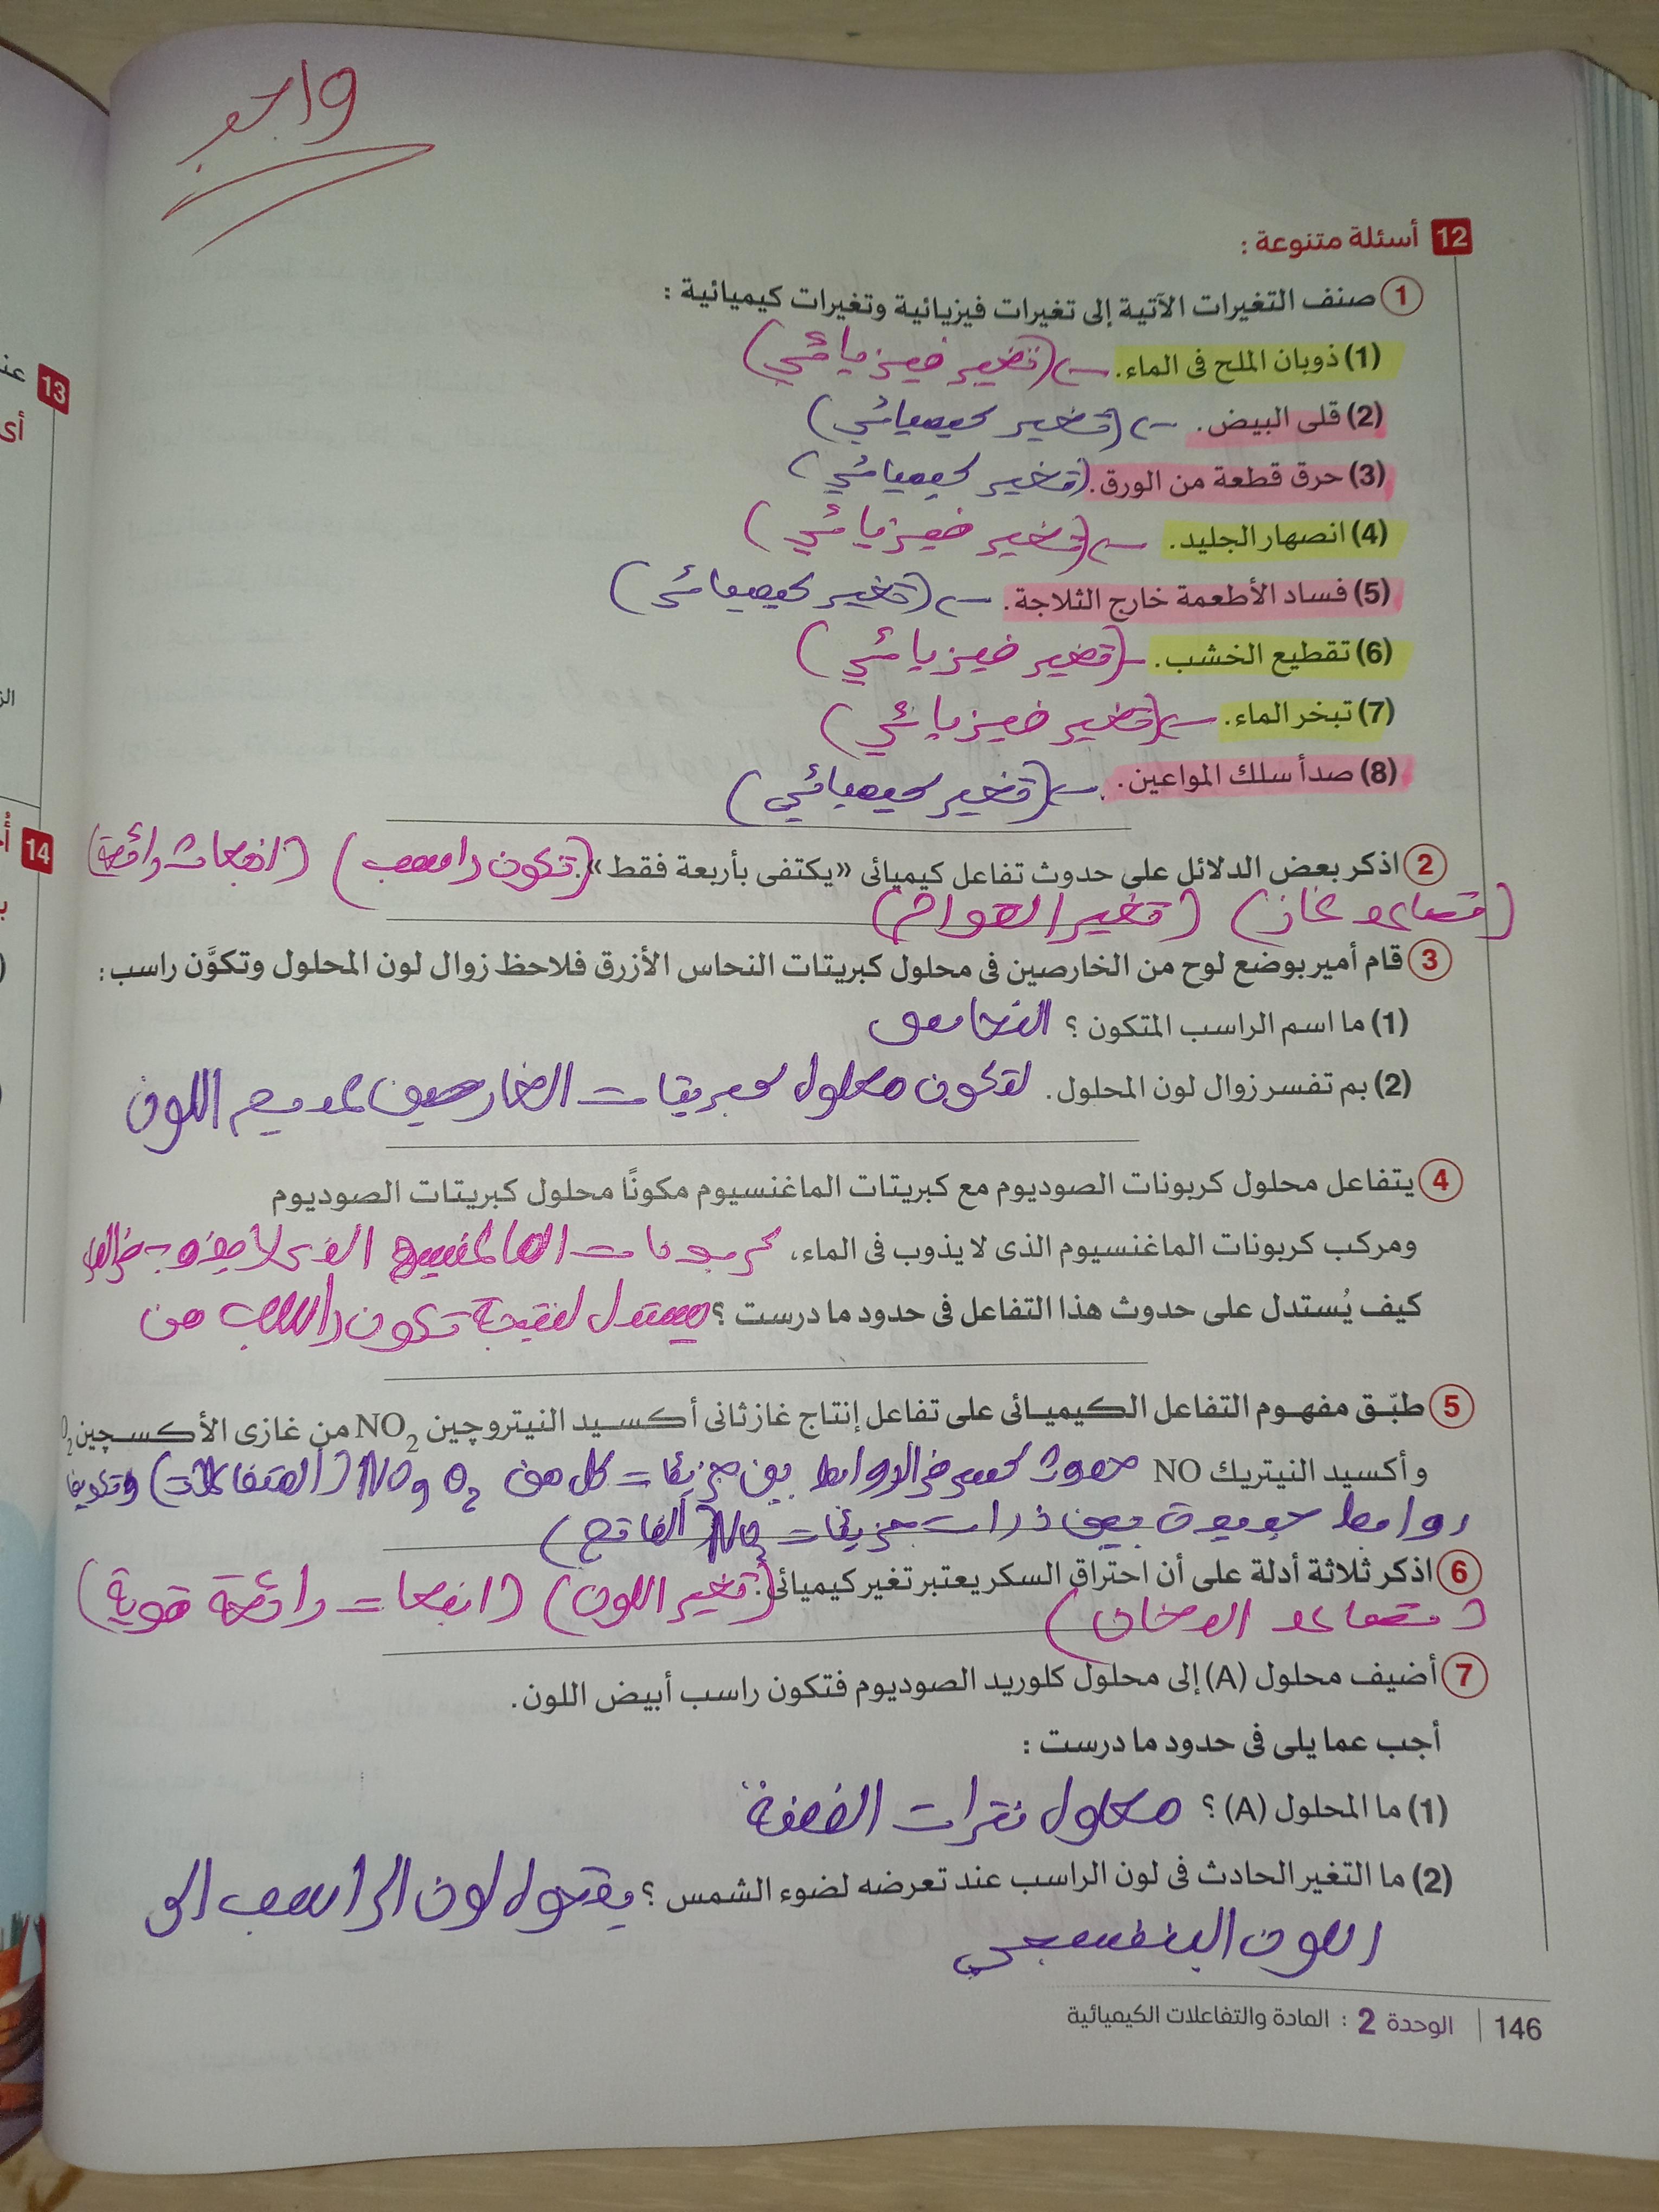 واجب
12 أسئلة متنوعة :
1 صنف التغيرات الآتية إلى تغيرات فيزيائية وتغيرات كيميائية :
(1) ذوبان الملح فى الماء. ← (تغير فيزيائي)
(2) قلى البيض. ← (تغير كيميائي)
(3) حرق قطعة من الورق. (تغير كيميائي)
(4) انصهار الجليد. ← (تغير فيزيائي)
(5) فساد الأطعمة خارج الثلاجة. ← (تغير كيميائي)
(6) تقطيع الخشب. – (تغير فيزيائي)
(7) تبخر الماء. ← (تغير فيزيائي)
(8) صدأ سلك المواعين. ← (تغير كيميائي)
2 اذكر بعض الدلائل على حدوث تفاعل كيميائى «يكتفى بأربعة فقط». (تكون راسب) (انبعاث رائحة)
(تصاعد غاز) (تغير القوام)
3 قام أمير بوضع لوح من الخارصين فى محلول كبريتات النحاس الأزرق فلاحظ زوال لون المحلول وتكوَّن راسب :
(1) ما اسم الراسب المتكون ؟ النحاس
(2) بم تفسر زوال لون المحلول. لتكون محلول كبريتات الخارصين عديم اللون
4 يتفاعل محلول كربونات الصوديوم مع كبريتات الماغنسيوم مكونًا محلول كبريتات الصوديوم
ومركب كربونات الماغنسيوم الذى لا يذوب فى الماء، كربونات الماغنسيوم الذى لا يذوب فى الماء
كيف يُستدل على حدوث هذا التفاعل فى حدود ما درست ؟ يستدل نتيجة تكون راسب من
5 طبّق مفهوم التفاعل الكيميائى على تفاعل إنتاج غاز ثانى أكسيد النيتروچين NO₂ من غازى الأكسچين O₂
وأكسيد النيتريك NO حدوث كسر في الروابط بين جزيئات كل من O₂ و NO (المتفاعلات) وتكوين
روابط جديدة بين ذرات جزيئات NO₂ (الناتج)
6 اذكر ثلاثة أدلة على أن احتراق السكر يعتبر تغير كيميائى. (تغير اللون) (انبعاث رائحة قوية)
(تصاعد الدخان)
7 أضيف محلول (A) إلى محلول كلوريد الصوديوم فتكون راسب أبيض اللون.
أجب عما يلى فى حدود ما درست :
(1) ما المحلول (A) ؟ محلول نترات الفضة
(2) ما التغير الحادث فى لون الراسب عند تعرضه لضوء الشمس ؟ يتحول لون الراسب الى
اللون البنفسجي
146 | الوحدة 2 : المادة والتفاعلات الكيميائية
13
14